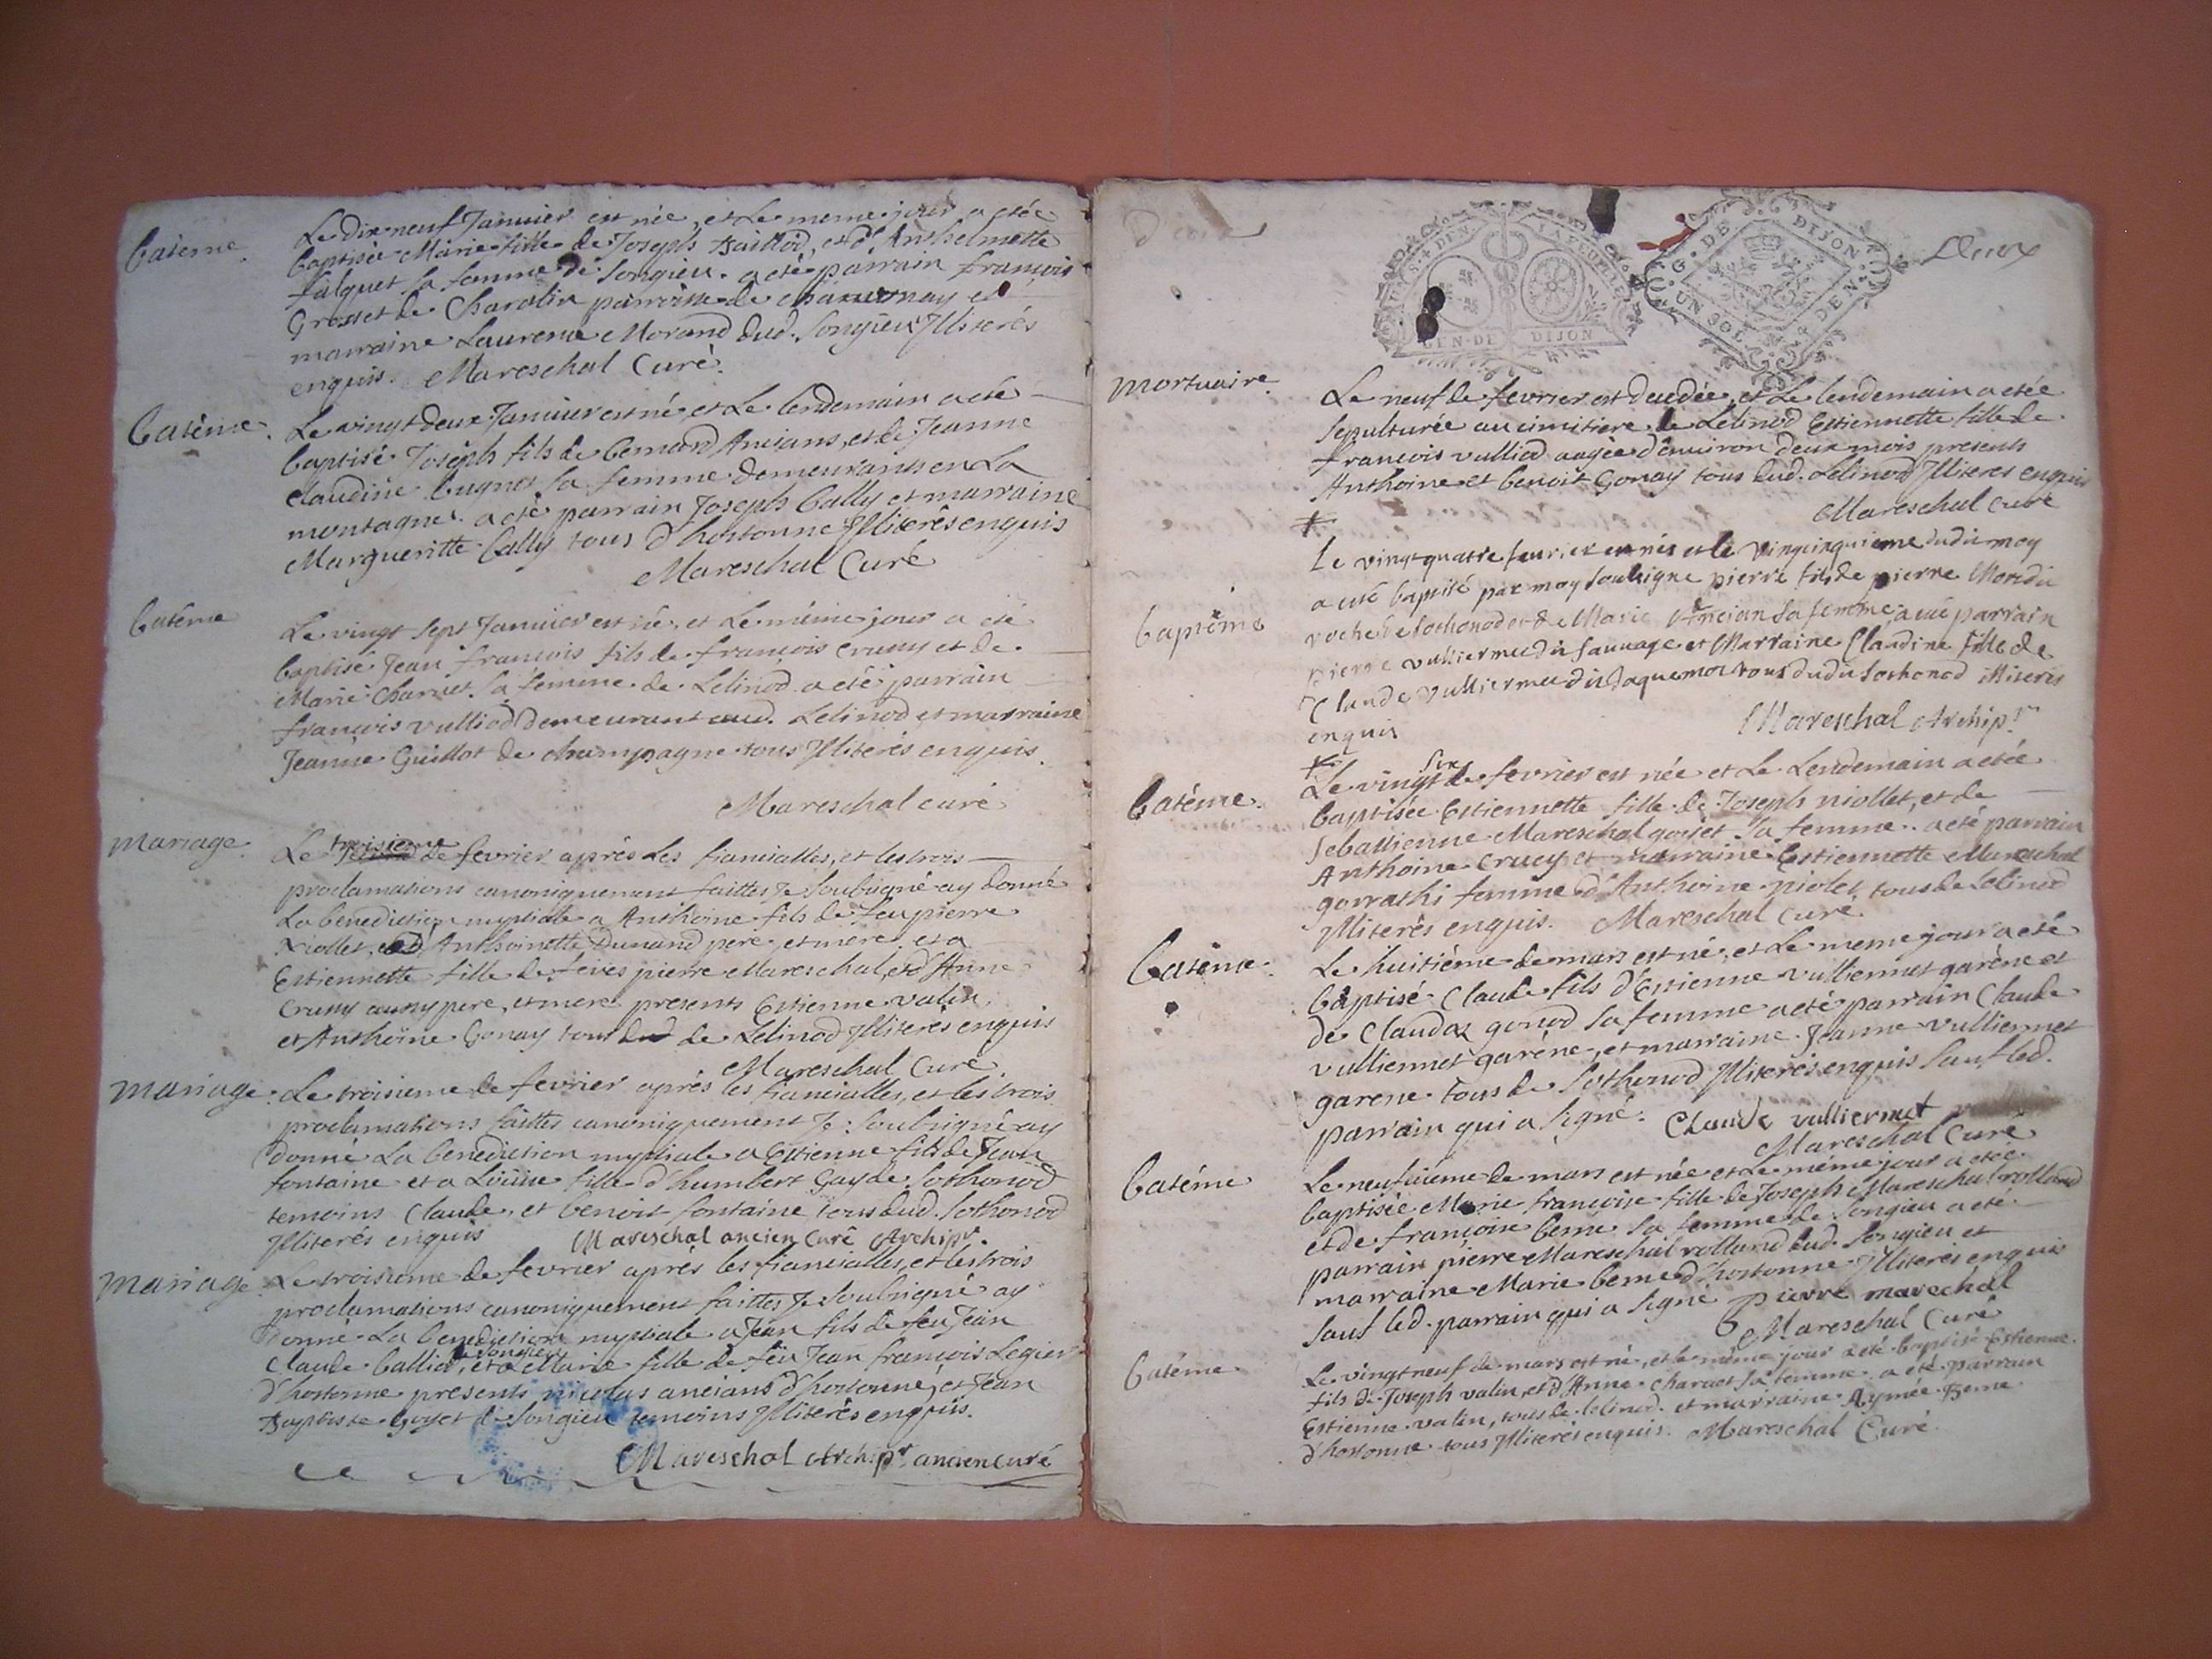 Batême.
Le Dix neuf Janvier est née, et Le meme jour a etée
baptisée Marie fille de Joseph Baillod, et d'Anthelmette
falquet sa femme de Songieu. a eté parrain francois
Grosset de Charolin parroisse de et
marraine Laurence Morand dud. Songieu Illiterés
enquis. Mareschal Curé.
Batême.
Le vingt deux Janvier est né, et Le lendemain a eté
baptisé Joseph fils de bernard Ancians, et de Jeanne
claudine bugnet sa femme demeurants en La
montagne. a eté parrain Joseph bally et marraine
Margueritte bally tous d'hostonne Illiterés enquis
Mareschal Curé
Batême
Le vingt sept Janvier est né, et Le même jour a eté
baptisé Jean francois fils de francois crussy et de
Marie Charvet sa femme de Lelinod a eté parrain
francois vulliod demeurant aud. Lelinod et marraine
Jeanne Guillot de champagne tous Illiterés enquis.
Mareschal curé
Mariage.
Le troisieme de fevrier aprés Les fiancialles, et les trois
proclamations canoniquement faittes Je Soubsigné ay donné
La benediction nuptiale a Anthoine fils de feu pierre
Niollet, et d'Anthoinette Dunand pere, et mere, et a
Estiennette fille de feu pierre Mareschal, et d'Anne
Crussy pere, et mere presents Estienne valin
et Anthoine Gonay tous de Lelinod Illiterés enquis
Mareschal Curé.
Mariage.
Le troisieme de fevrier aprés les fiancialles, et les trois
proclamations faittes canoniquement Je Soubsigné ay
donné La benediction nuptiale a Estienne fils de Jean
fontaine et a Loüise fille d'humbert Gay de Sothonod
temoins Claude, et benoit fontaine tous dud. Sothonod
Illiterés enquis Mareschal ancien Curé Archipr.
Mariage
Le troisieme de fevrier aprés les fiancialles, et les trois
proclamations canoniquement faittes Je Soubsigné ay
donné La benediction nuptiale a Jean fils de feu Jean
de Songieu
Claude ballia, et a Marie fille de feu Jean francois Legier
d'hostonne presents nicolas ancians d'hostonne, et Jean
Baptiste Goyet de Songieu temoins Illiterés enquis.
Mareschal Archipr. ancien curé
GEN. DE DIJON
G. DE DIJON
UN SOL 4 DEN.
Deux
Mortuaire
Le neuf de fevrier est decedée, et Le lendemain a etée
sepulturée au cimitiere de Lelinod Estiennette fille de
francois vulliod aagée d'environ deux mois presents
Anthoine et benoit Gonay tous dud. Lelinod Illiteres enquis
Mareschal curé
Baptême
Le vingt quatre fevrier est nés et le vingcinquieme dudit moy
a eté baptisé par moy soubsigne pierre fils de pierre Mondit
roche de Sothonod et de Marie Ancian sa femme a eté parrain
pierre vulliermet dit Sauvage et Marraine Claudine fille de
Claude vulliermet dit Jaquemot tous dudit Sothonod illiteres
enquis Mareschal Archipr.
Batême.
Le vingt six de fevrier est née et Le Lendemain a etée
baptisée Estiennette fille de Joseph niollet, et de
Sebastienne Mareschal goiset sa femme. a eté parrain
Anthoine Crucy et marraine Estiennette Mareschal
gorrathi femme d'Anthoine niolet tous de Lelinod
Illiterés enquis. Mareschal curé.
Batême.
Le huitiéme de mars est né, et Le meme jour a eté
baptisé Claude fils d'Estienne vulliermet garéne et
de Claudaz gonod sa femme a eté parrain Claude
vulliermet garéne, et marraine Jeanne vulliermet
garene tous de Sothonod Illiterés enquis Sauf led.
parrain qui a signé. Claude vulliermet
Mareschal Curé
Batéme
Le neufviéme de mars est née et Le méme jour a etée
baptisée Marie francoise fille de Joseph Mareschal rolland
et de francoise berne sa femme de Songieu a eté
parrain pierre Mareschal rolland dud. Songieu et
marraine Marie berne d'hostonne Illiterés enquis
Sauf led. parrain qui a signé pierre marechal
Mareschal Curé
Batéme
Le vingt neuf de mars est né, et le même jour a eté baptisé Estienne
fils de Joseph valin, et d'Anne Charvet sa femme. a eté parrain
Estienne valin, tous de lelinod. et marraine Aymée Berne
d'hostonne tous Illiterés enquis. Mareschal Curé.